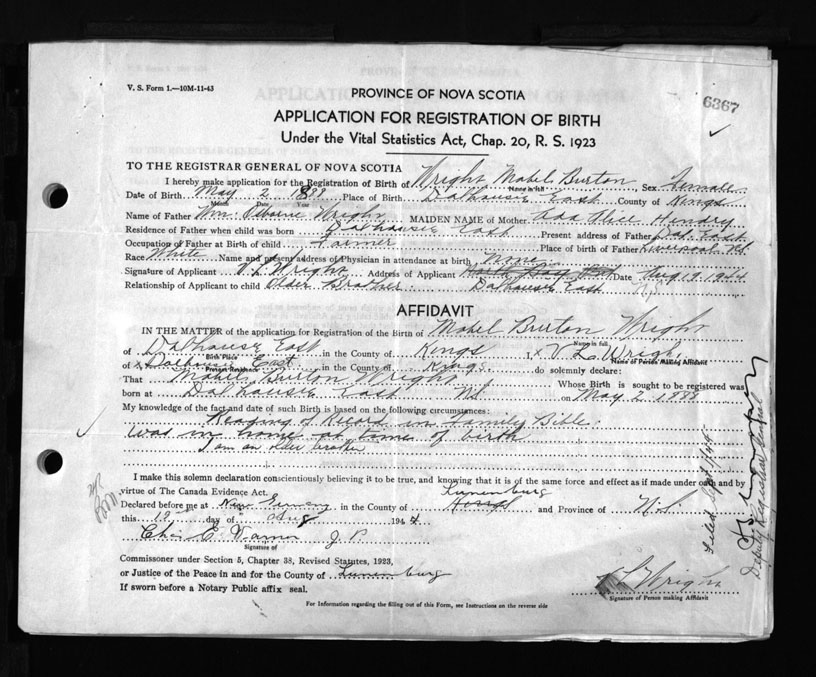 V. S. Form 1.—10M-11-43
6367
PROVINCE OF NOVA SCOTIA
APPLICATION FOR REGISTRATION OF BIRTH
Under the Vital Statistics Act, Chap. 20, R. S. 1923
TO THE REGISTRAR GENERAL OF NOVA SCOTIA
I hereby make application for the Registration of Birth of Wright Mabel Burton Sex Female
Name in full
Date of Birth May 2 1888 Place of Birth Dalhousie East County of Kings
Month Day Year
Name of Father Wm. Wright MAIDEN NAME of Mother Ada Alice Hendry
Residence of Father when child was born Dalhousie East Present address of Father Dal. East
Occupation of Father at Birth of child Farmer Place of birth of Father Liverpool NS
Race White Name and present address of Physician in attendance at birth None
Signature of Applicant V L Wright Address of Applicant Date Aug 19 1944
Relationship of Applicant to child Older Brother Dalhousie East N.S.
AFFIDAVIT
IN THE MATTER of the application for Registration of the Birth of Mabel Burton Wright
Name in full
of Dalhousie East in the County of Kings I, x V L Wright
Birth Place Name of Person Making Affidavit
of x Dalhousie East in the County of Kings do solemnly declare:
Present Residence
That Mabel Burton Wright Whose Birth is sought to be registered was
born at Dalhousie East NS on May 2 1888
My knowledge of the fact and date of such Birth is based on the following circumstances:
Reading of Record in Family Bible.
Was in home at time of birth
I am an older brother
I make this solemn declaration conscientiously believing it to be true, and knowing that it is of the same force and effect as if made under oath and by
virtue of The Canada Evidence Act. Lunenburg
Declared before me at New Germany in the County of Kings and Province of N.S.
this 19 day of Aug 1944
Chas E. Varner J. P.
Signature of
Commissoner under Section 5, Chapter 38, Revised Statutes, 1923,
or Justice of the Peace in and for the County of Lunenburg
If sworn before a Notary Public affix seal.
V L Wright
Signature of Person making Affidavit
For Information regarding the filling out of this Form, see Instructions on the reverse side
Filed Sept 1/44
Deputy Registrar General